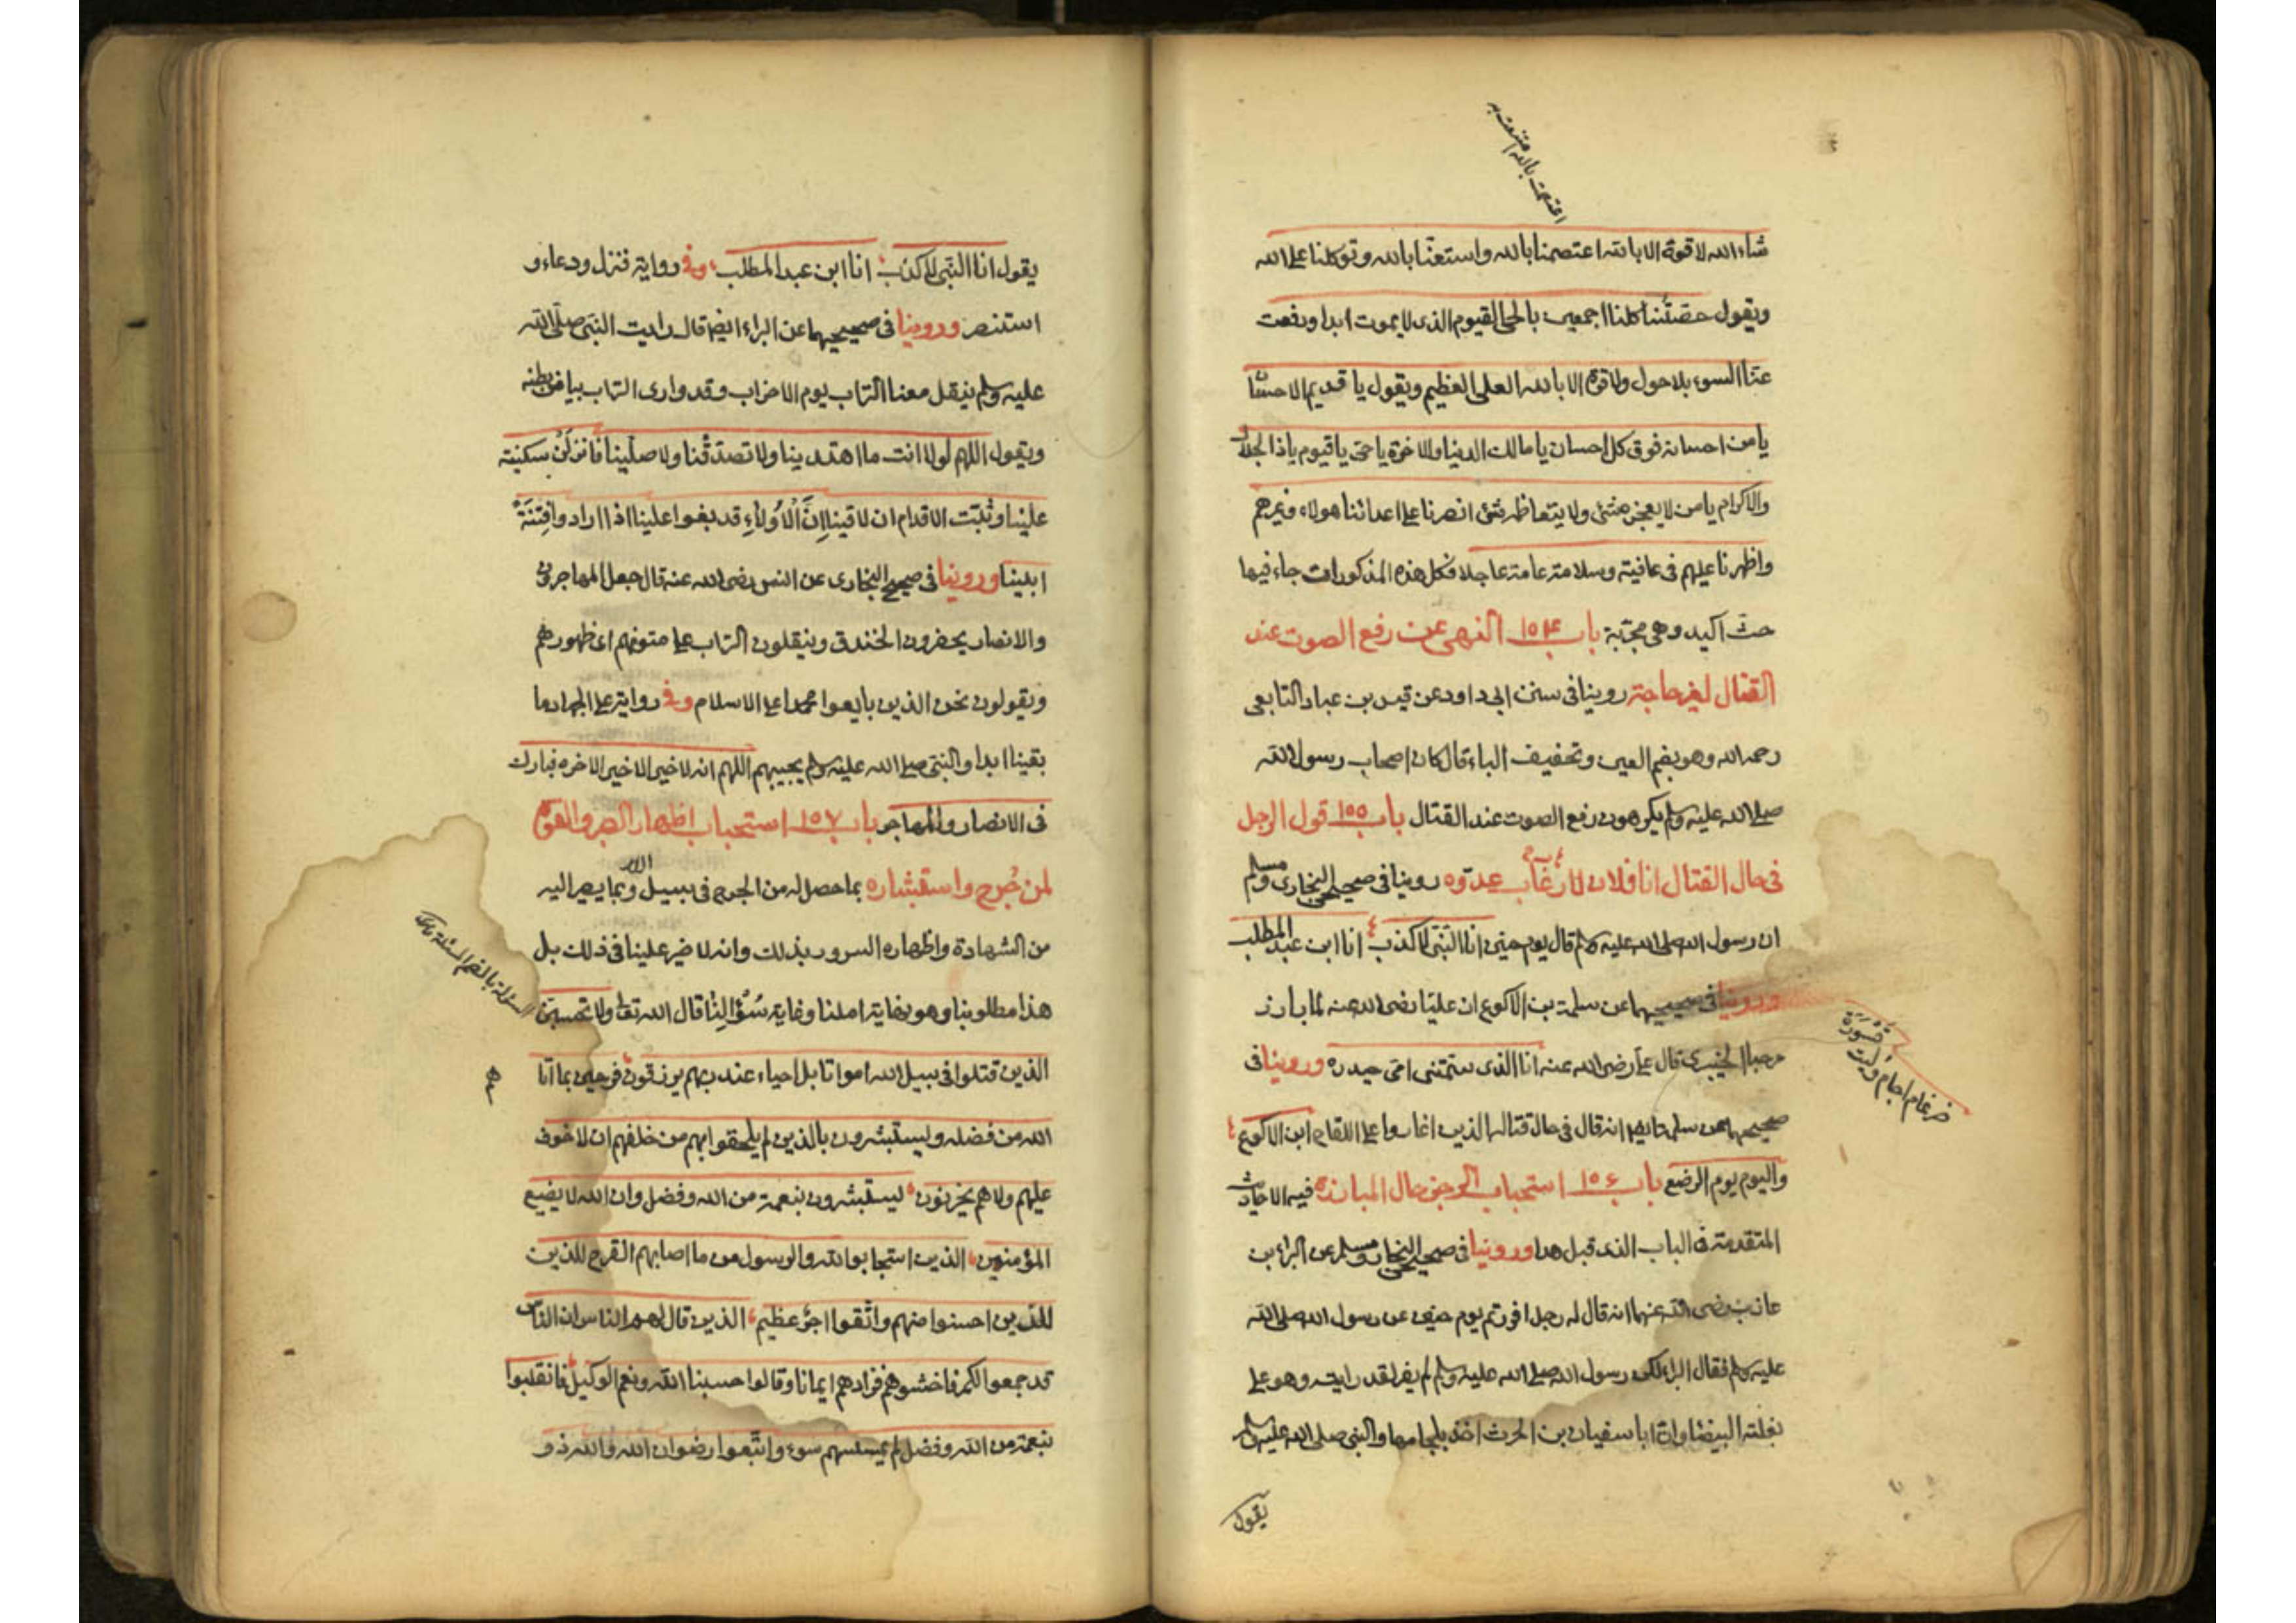 اعتصمت بالله
شاء الله لا قوة الا بالله اعتصمنا بالله واستعنّا بالله وتوكلنا على الله
ويقول حصّنتنا كلنا اجمعين بالحى القيوم الذى لا يموت ابدا ودفعت
عنّا السوء بلا حول ولا قوة الا بالله العلى العظيم ويقول يا قديم الاحسان
يا من احسانه فوق كل احسان يا مالك الدنيا والاخرة يا حى يا قيوم يا ذا الجلال
والاكرام يا من لا يعجزه شئ ولا يتعاظمه شئ انصرنا على اعدائنا هولاء وغيرهم
واظهرنا عليهم فى عافية وسلامة عامة عاجلا فكل هذه المذكورات جاء فيها
حث اكيد وهى مجرّبة باب ١٥٤ النهى عن رفع الصوت عند
القتال لغير حاجة روينا فى سنن ابى داود عن قيس بن عباد التابعى
رحمه الله وهو بضم العين وتخفيف الباء قال كان اصحاب رسول الله
صلى الله عليه وسلم يكرهون رفع الصوت عند القتال باب ١٥٥ قول الرجل
فى حال القتال انا فلان لارغاب عدوّه روينا فى صحيحى البخارى ومسلم
ان رسول الله صلى الله عليه وسلم قال يوم حنين انا النبى لا كذب انا ابن عبد المطلب
وروينا فى صحيحيهما عن سلمة بن الاكوع ان عليّا رضى الله عنه لما بارز
مرحبا الخيبرى قال على رضى الله عنه انا الذى سمّتنى امّى حيدره وروينا فى
ضرغام اجام وليث قَسْوَرَة
صحيحيهما عن سلمة ايضا انه قال فى حال قتاله الذين اغاروا على اللقاح انا ابن الاكوع
واليوم يوم الرضع باب ١٥٦ استحباب الرجز حال المبارزة فيه الاحاديث
المتقدمة فى الباب الذى قبل هذا وروينا فى صحيحى البخارى ومسلم عن البراء بن
عازب رضى الله عنهما انه قال له رجل افررتم يوم حنين عن رسول الله صلى الله
عليه وسلم فقال البراء لكن رسول الله صلى الله عليه وسلم لم يفر لقد رايته وهو على
بغلته البيضاء وان ابا سفيان بن الحرث اخذ بلجامها والنبى صلى الله عليه وسلم
يقول
يقول انا النبى لا كذب انا ابن عبد المطلب وفى رواية فنزل ودعاء و
استنصر وروينا فى صحيحيهما عن البراء ايضا قال رايت النبى صلى الله
عليه وسلم ينقل معنا التراب يوم الاحزاب وقد وارى التراب بياض بطنه
ويقول اللهم لولا انت ما اهتدينا ولا تصدّقنا ولا صلّينا فانزلَنْ سكينة
علينا وثبّت الاقدام ان لاقينا اِنَّ الْاُولاءِ قد بغوا علينا اذا ارادوا فِتنَةً
ابينا وروينا فى صحيح البخارى عن انس رضى الله عنه قال جعل المهاجرون
والانصار يحفرون الخندق وينقلون التراب على متونهم اى ظهورهم
ويقولون نحن الذين بايعوا محمدا على الاسلام وفى رواية على الجهاد ما
بقينا ابدا والنبى صلى الله عليه وسلم يجيبهم اللهم انه لا خير الا خير الاخره فبارك
فى الانصار والمهاجر باب ١٥٧ استحباب اظهار الصبر والقوة
لمن جُرح واستبشاره بما حصل له من الجرح فى سبيل الله وبما يصير اليه
من الشهادة واظهاره السرور بذلك وانه لا ضير علينا فى ذلك بل
هذا مطلوبنا وهو نهاية املنا وغاية سُؤْالِنا قال الله تعالى ولا تحسبنّ
الذين قتلوا فى سبيل الله امواتا بل احياء عند ربهم يرزقون فرحين بما اتا
هم
الله من فضله ويستبشرون بالذين لم يلحقوا بهم من خلفهم ان لا خوف
عليهم ولا هم يحزنون يستبشرون بنعمة من الله وفضل وان الله لا يضيع
المؤمنين الذين استجابوا لله والرسول من ما اصابهم القرح للذين
للذين احسنوا منهم واتّقوا اجرٌ عظيم الذين قال لهم الناس ان الناس
قد جمعوا لكم فاخشوهم فزادهم ايمانا وقالوا حسبنا الله ونعم الوكيل فانقلبوا
بنعمة من الله وفضل لم يمسسهم سوء واتّبعوا رضوان الله والله ذو